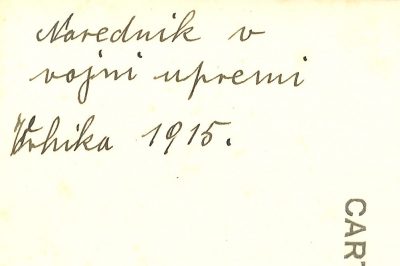 Narednik v
vojni upremi
Vrhika 1915.
CART